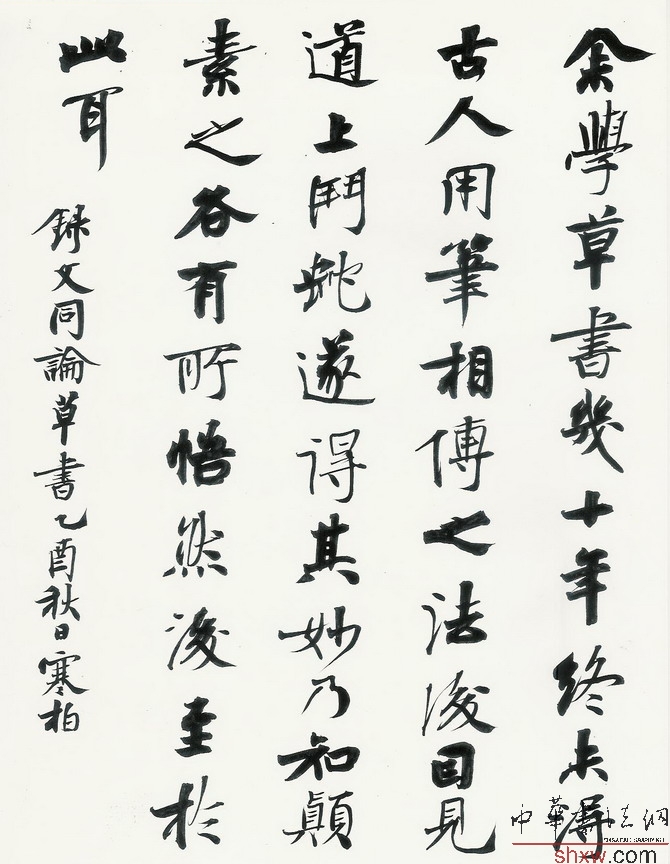 余學草書幾十年終未得
古人用筆相傳之法後因見
道上鬥蛇遂得其妙乃知顛
素之各有所悟然後至於
此耳
錄文同論草書乙酉秋日寒柏
中華書法網
shxw.com